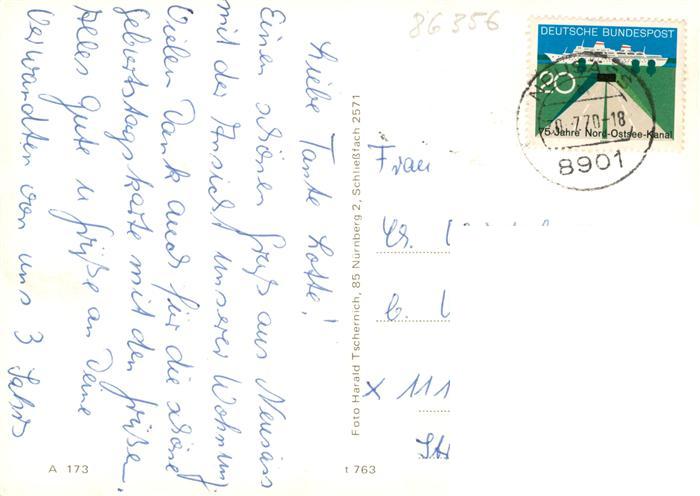 86356
Liebe Tante Lotte!
Einen schönen Gruß aus Neusäss
mit der Ansicht unserer Wohnung.
Vielen Dank auch für die schöne
Geburtstagskarte mit den Grüßen.
Alles Gute u Grüße an Deine
Verwandten von uns 3
A 173
t 763
Foto Harald Tschernich, 85 Nürnberg 2, Schließfach 2571
DEUTSCHE BUNDESPOST
20
75 Jahre Nord-Ostsee-Kanal
.7.70-18
8901
Frau
X 111